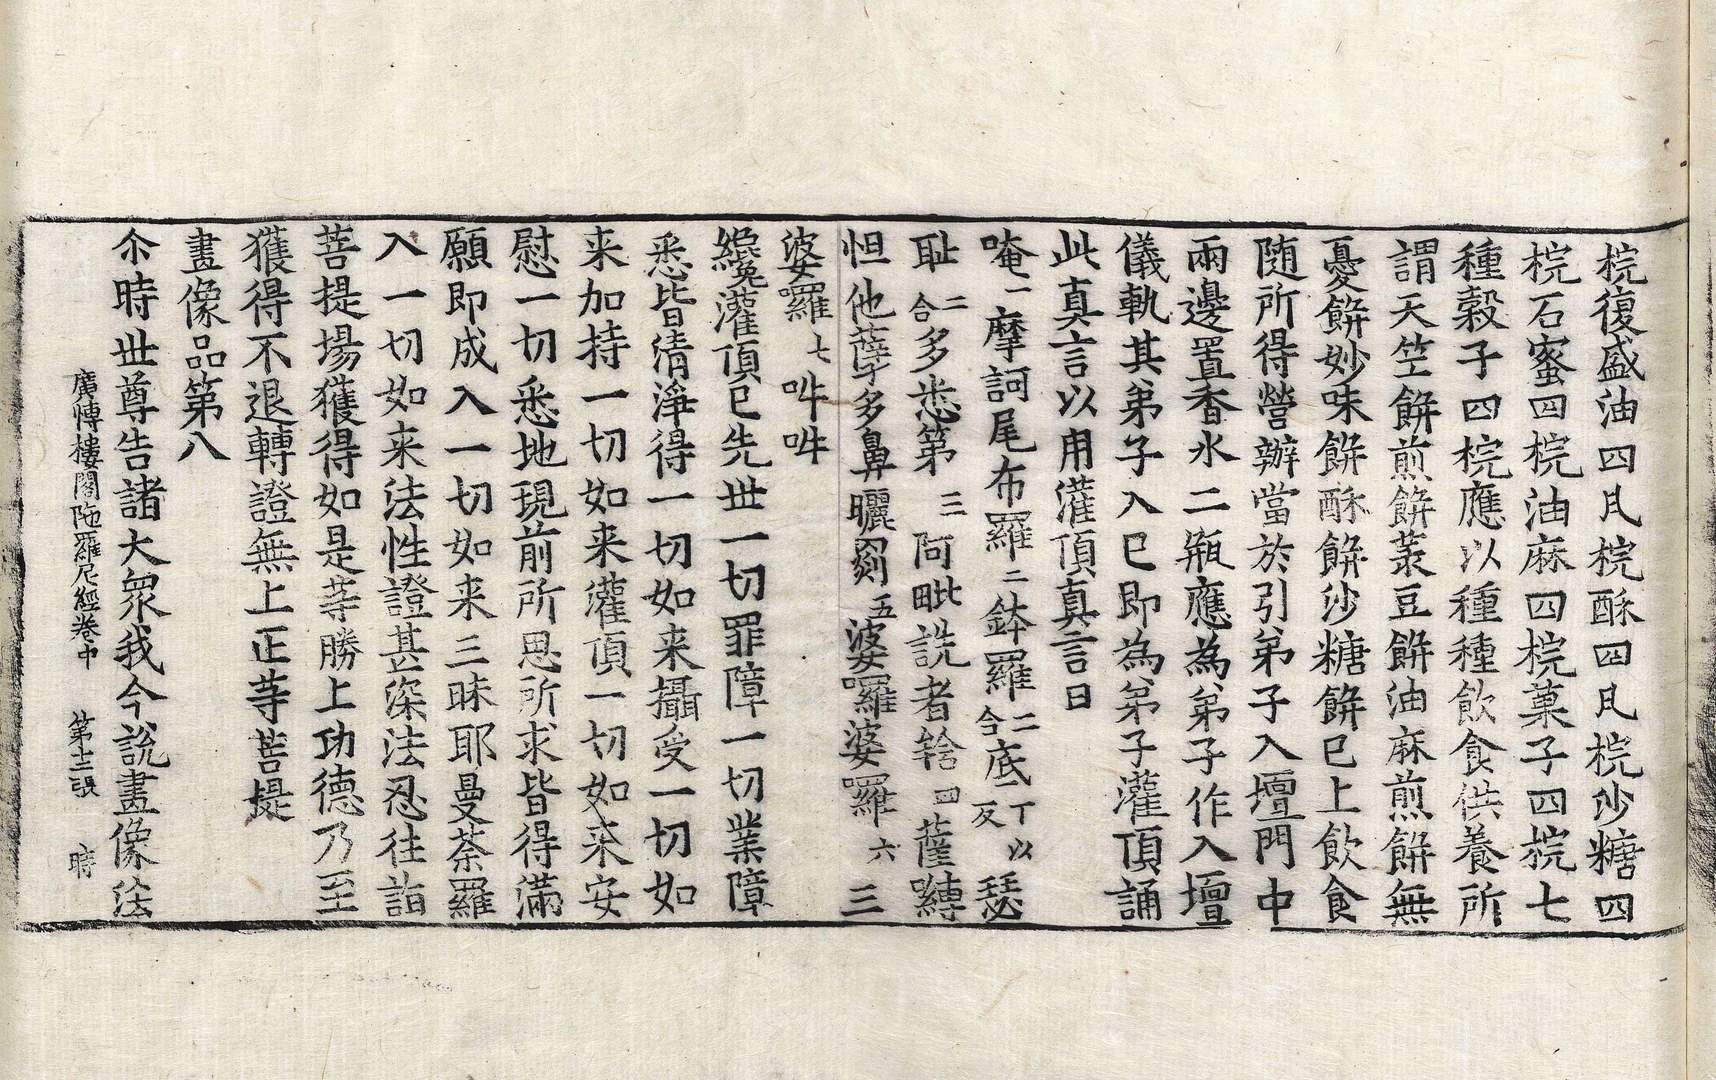 椀復盛油四瓦椀酥四瓦椀沙糖四
椀石蜜四椀油麻四椀菓子四椀七
種穀子四椀應以種種飲食供養所
謂天竺餅煎餅菉豆餅油麻煎餅無
憂餅妙味餅酥餅沙糖餅已上飲食
隨所得營辦當於引弟子入壇門中
兩邊置香水二瓶應為弟子作入壇
儀軌其弟子入已即為弟子灌頂誦
此真言以用灌頂真言曰
唵一摩訶尾布羅二鉢羅二合底丁以反瑟
耻二合多悉第三阿毗詵者𤚥四薩嚩
怛他蘖多鼻曬罽五婆囉婆囉六三
婆囉七吽吽
纔灌頂已先世一切罪障一切業障
悉皆清淨得一切如来攝受一切如
来加持一切如来灌頂一切如来安
慰一切悉地現前所思所求皆得滿
願即成入一切如来三昧耶曼荼羅
入一切如来法性證甚深法忍往詣
菩提場獲得如是等勝上功德乃至
獲得不退轉證無上正等菩提
畫像品第八
尒時世尊告諸大衆我今説畫像法
廣博樓閣陁羅尼經卷中　第十二張　時